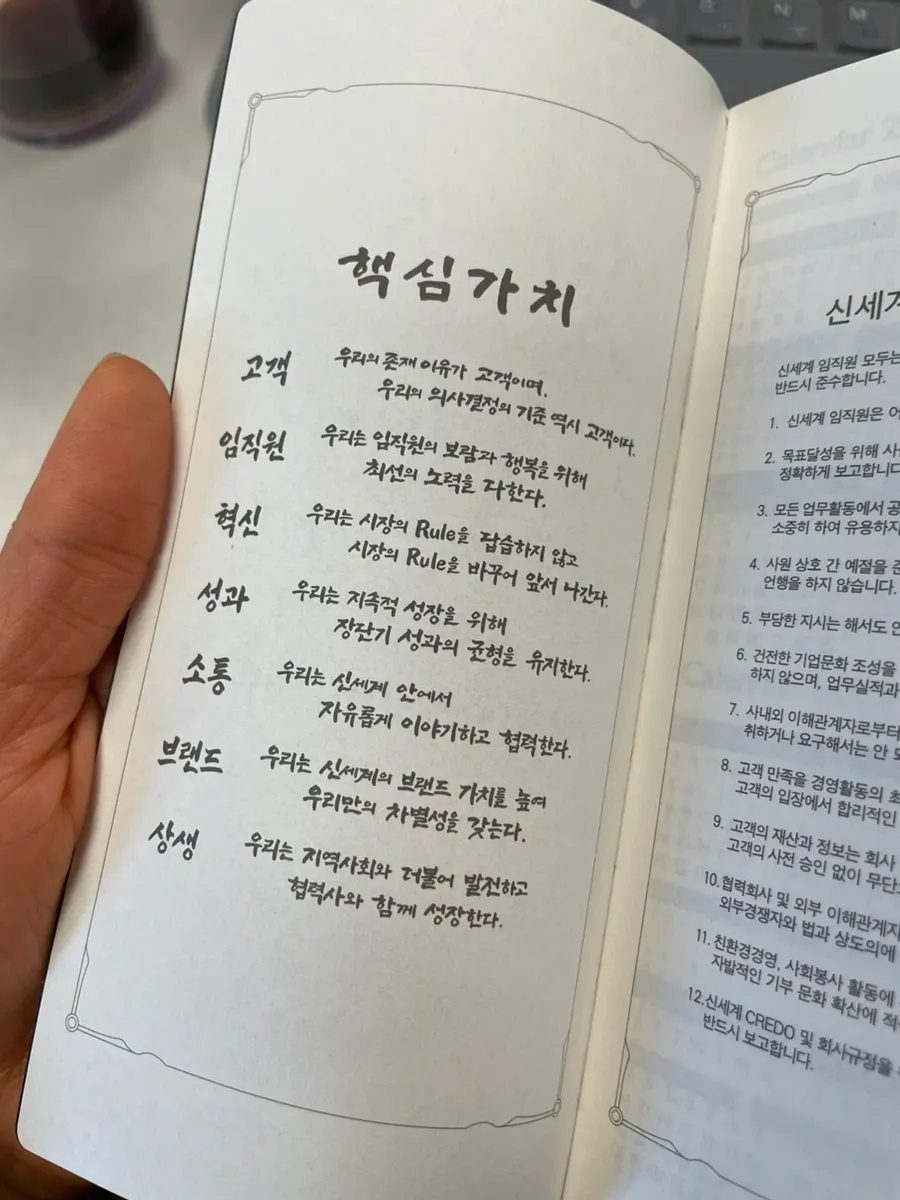 핵심가치
고객 우리의 존재 이유가 고객이며,
우리의 의사결정의 기준 역시 고객이다.
임직원 우리는 임직원의 보람과 행복을 위해
최선의 노력을 다한다.
혁신 우리는 시장의 Rule을 답습하지 않고
시장의 Rule을 바꾸어 앞서 나간다.
성과 우리는 지속적 성장을 위해
장단기 성과의 균형을 유지한다.
소통 우리는 신세계 안에서
자유롭게 이야기하고 협력한다.
브랜드 우리는 신세계의 브랜드 가치를 높여
우리만의 차별성을 갖는다.
상생 우리는 지역사회와 더불어 발전하고
협력사와 함께 성장한다.
신세계
신세계 임직원 모두는
반드시 준수합니다.
1. 신세계 임직원은
2. 목표달성을 위해
정확하게 보고합니다
3. 모든 업무활동에서
소중히 하여 유용하지
4. 사원 상호 간 예절을
언행을 하지 않습니다.
5. 부당한 지시는 해서도
6. 건전한 기업문화 조성을
하지 않으며, 업무실적과
7. 사내외 이해관계자로부터
취하거나 요구해서는 안
8. 고객 만족을 경영활동의
고객의 입장에서 합리적인
9. 고객의 재산과 정보는 회사
고객의 사전 승인 없이
10. 협력회사 및 외부 이해관계자
외부경쟁자와 법과 상도의에
11. 친환경경영, 사회봉사 활동에
자발적인 기부 문화 확산에
12. 신세계 CREDO 및 회사규정을
반드시 보고합니다.
E
N
M